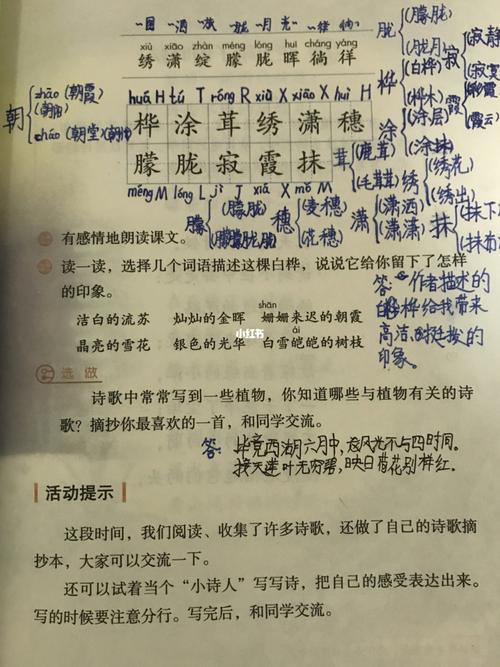 洒 放 胧 月 光 徜 徉
xiù xiāo zhàn méng lóng huī cháng yáng
绣 潇 绽 朦 胧 晖 徜 徉
huá H tú T róng R xiù X xiāo X huì H
桦 涂 茸 绣 潇 穗
朦 胧 寂 霞 抹
méng M lóng L jì J xiá X mǒ M
朝 zhāo (朝霞)
(朝阳)
cháo (朝堂)
胧 (朦胧)
(胧月)
桦 (白桦)
(桦木)
涂 (涂层)
(涂抹)
寂 (寂静)
霞
(霞云)
茸 (鹿茸)
(毛茸茸)
绣 (绣花)
(绣出)
朦 (朦胧)
(朦朦胧胧)
穗 (麦穗)
潇 (潇洒)
(潇潇)
抹 (抹下
(抹布
有感情地朗读课文。
读一读,选择几个词语描述这棵白桦,说说它给你留下了怎样
的印象。
shān
洁白的流苏 灿灿的金晖 姗姗来迟的朝霞
ái
晶亮的雪花 银色的光华 白雪皑皑的树枝
小红书
答:作者描述的
白桦给我带来
高洁、挺拔的
印象。
选做
诗歌中常常写到一些植物,你知道哪些与植物有关的诗
歌?摘抄你最喜欢的一首,和同学交流。
答:毕竟西湖六月中,风光不与四时同。
接天莲叶无穷碧,映日荷花别样红。
活动提示
这段时间,我们阅读、收集了许多诗歌,还做了自己的诗歌摘
抄本,大家可以交流一下。
还可以试着当个“小诗人”写写诗,把自己的感受表达出来。
写的时候要注意分行。写完后,和同学交流。